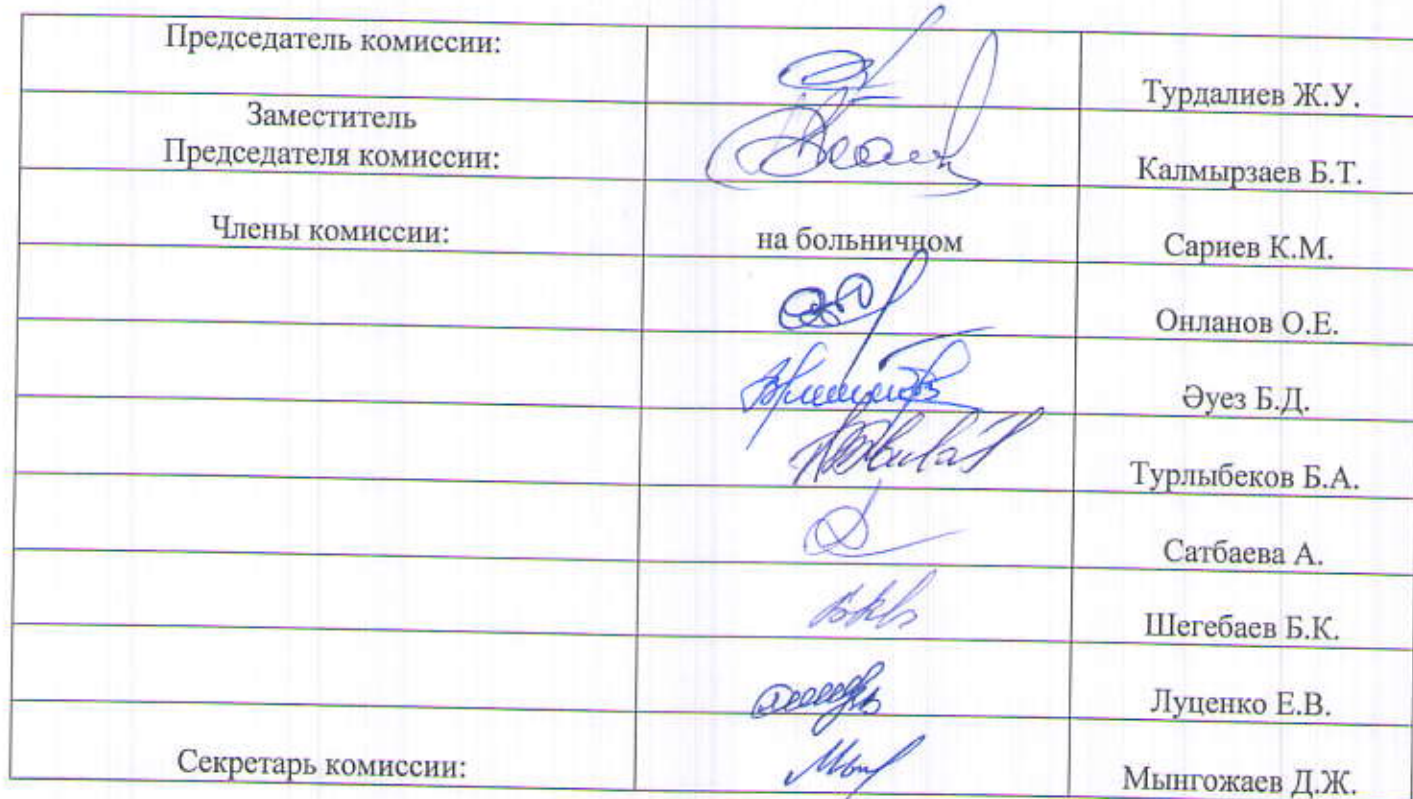 Председатель комиссии:
Турдалиев Ж.У.
Заместитель
Председателя комиссии:
Калмырзаев Б.Т.
Члены комиссии:
на больничном
Сариев К.М.
Онланов О.Е.
Әуез Б.Д.
Турлыбеков Б.А.
Сатбаева А.
Шегебаев Б.К.
Луценко Е.В.
Секретарь комиссии:
Мынгожаев Д.Ж.